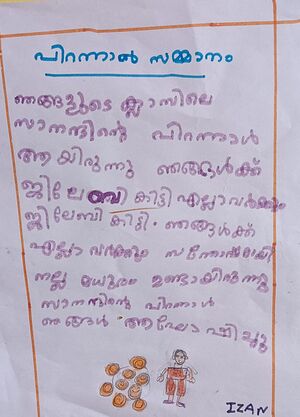 പിറന്നാൾ സമ്മാനം
ഞങ്ങളുടെ ക്ലാസിലെ
സാനന്ദിൻ്റെ പിറന്നാൾ
ആയിരുന്നു ഞങ്ങൾക്ക്
ജിലേബി കിട്ടി എല്ലാവർക്കും
ജിലേബി കിട്ടി. ഞങ്ങൾക്ക്
എല്ലാവർക്കും സന്തോഷമായി
നല്ല മധുരം ഉണ്ടായിരുന്നു
സാനന്ദിൻ്റെ പിറന്നാൾ
ഞങ്ങൾ ആഘോഷിച്ചു
IZAN